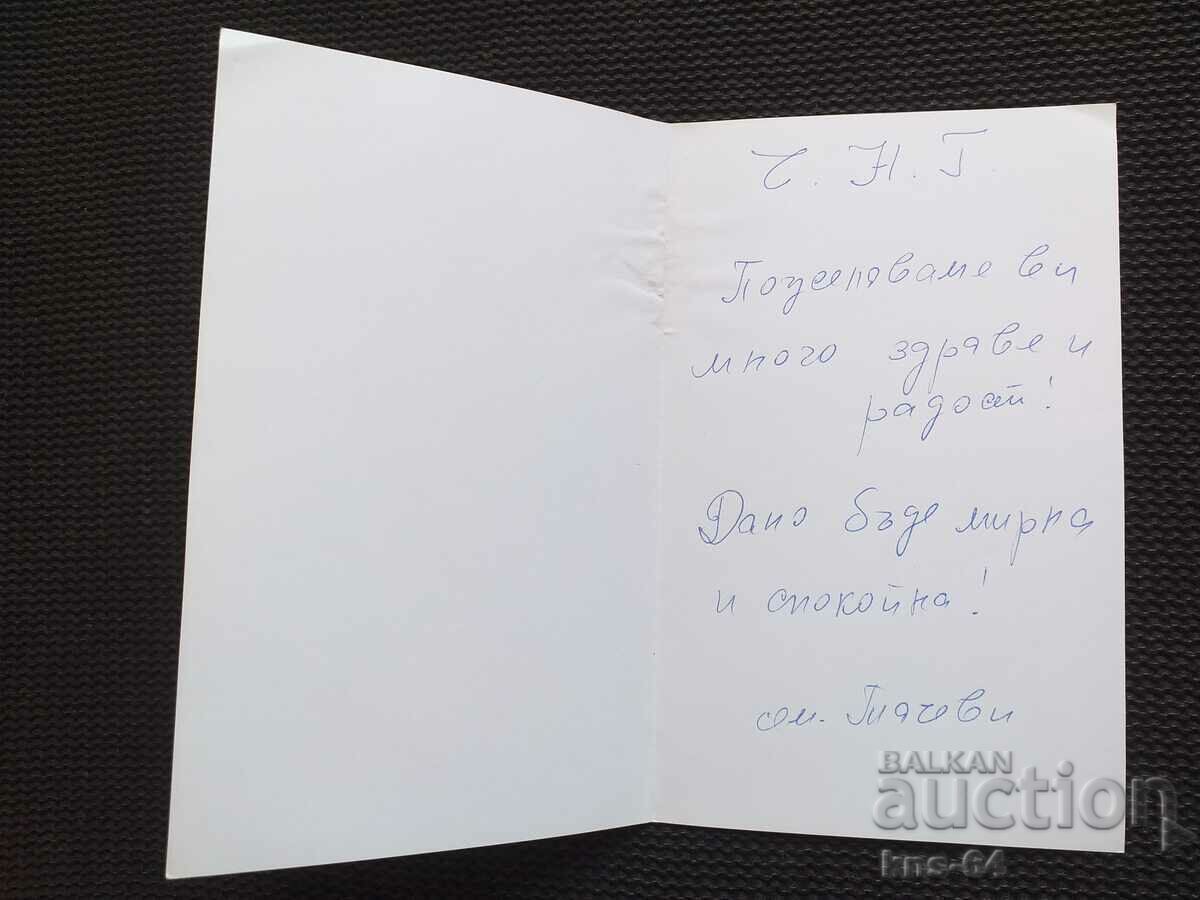 Ч. Н. Г.
Пожеляваме ви
много здраве и
радост!
Дано бъде мирна
и спокойна!
сем.
BALKAN
auction
kns-64